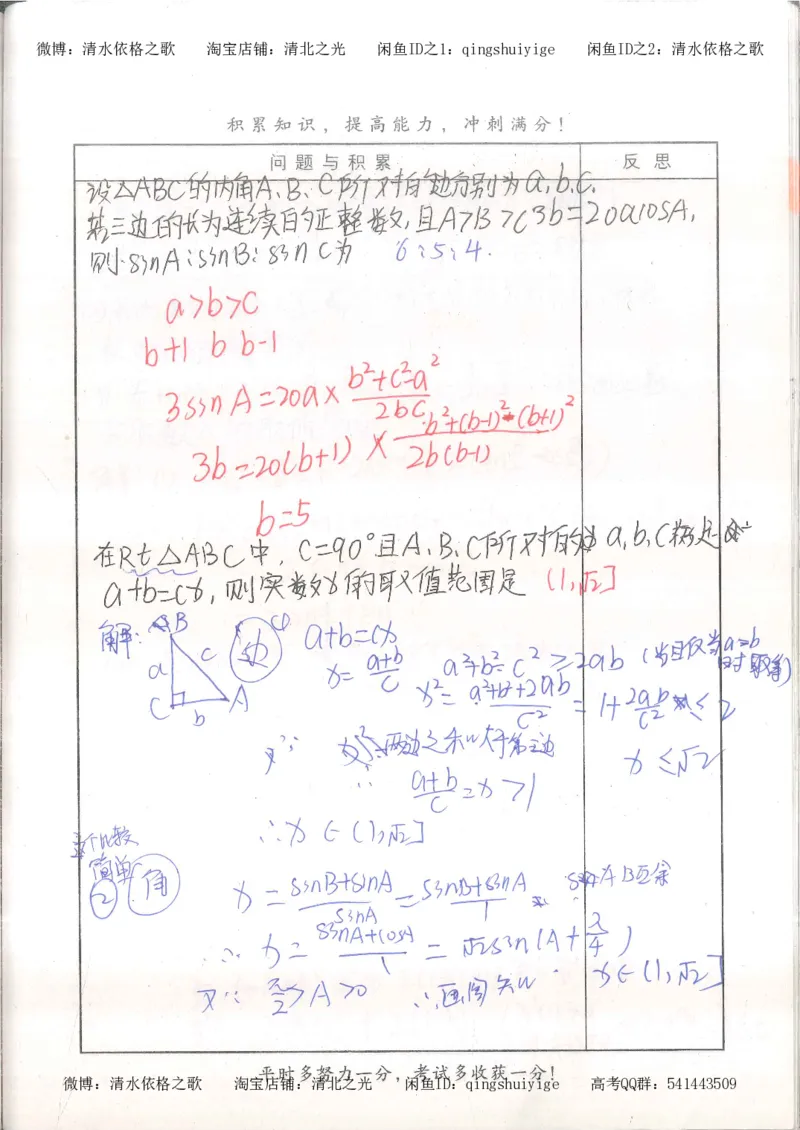 微博：清水依格之歌 淘宝店铺：清北之光 闲鱼ID之1：qingshuiyige 闲鱼ID之2：清水依格之歌
积累知识，提高能力，冲刺满分！
问题与积累 反思
设△ABC的内角A、B、C所对的边分别为a,b,c,
若三边的长为连续的正整数,且A>B>C 3b=20acosA,
则sinA:sinB:sinC为 6:5:4.
a>b>c
b+1 b b-1
3sinA=20a×(b²+c²-a²)/2bc
3b=20(b+1)×(b²+(b-1)²-(b+1)²)/2b(b-1)
b=5
在Rt△ABC中，C=90°且A、B、C所对的边a,b,c满足
a+b=cx,则实数x的取值范围是 (1,√2]
解: B ① 边 a+b=cx
a c C b A
x=(a+b)/c a²+b²=c²≥2ab (当且仅当a=b时取等)
x²=(a²+b²+2ab)/c²=1+2ab/c²≤2
x≤√2
又∵ 两边之和大于第三边
∴ (a+b)/c=x>1
∴x∈(1,√2]
这个比较
简单
② 角
x=(sinB+sinA)/sinA=(sinB+sinA)/1 A B互余
∴x=(sinA+cosA)/1=√2sin(A+π/4)
又∵π/2>A>0 ∴画图知 x∈(1,√2]
平时多努力一分，考试多收获一分！
微博：清水依格之歌 淘宝店铺：清北之光 闲鱼ID：qingshuiyige 高考QQ群：541443509